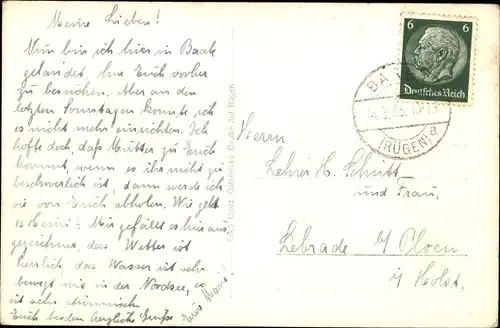 Meine Lieben!
Nun bin ich hier in Baabe
gelandet, ohne Euch vorher
zu besuchen. Aber an den
letzten Sonntagen konnte ich
es nicht mehr einrichten. Ich
hoffe doch, daß Mutter zu Euch
kommt, wenn es ihr nicht zu
beschwerlich ist, dann werde ich
sie von Euch abholen. Wie geht
es Heini? Mir gefällt es hier aus-
gezeichnet, das Wetter ist
herrlich, das Wasser ist sehr
bewegt wie in der Nordsee, es
ist sehr stürmisch
Euch beiden herzliche Grüße
Eure
Baabe auf Rügen
6 6
Deutsches Reich
BA
(RÜGEN) a
Herrn
Lehrer H. Schütt
und Frau,
Lebrade b/ Ploen
i/ Holst.